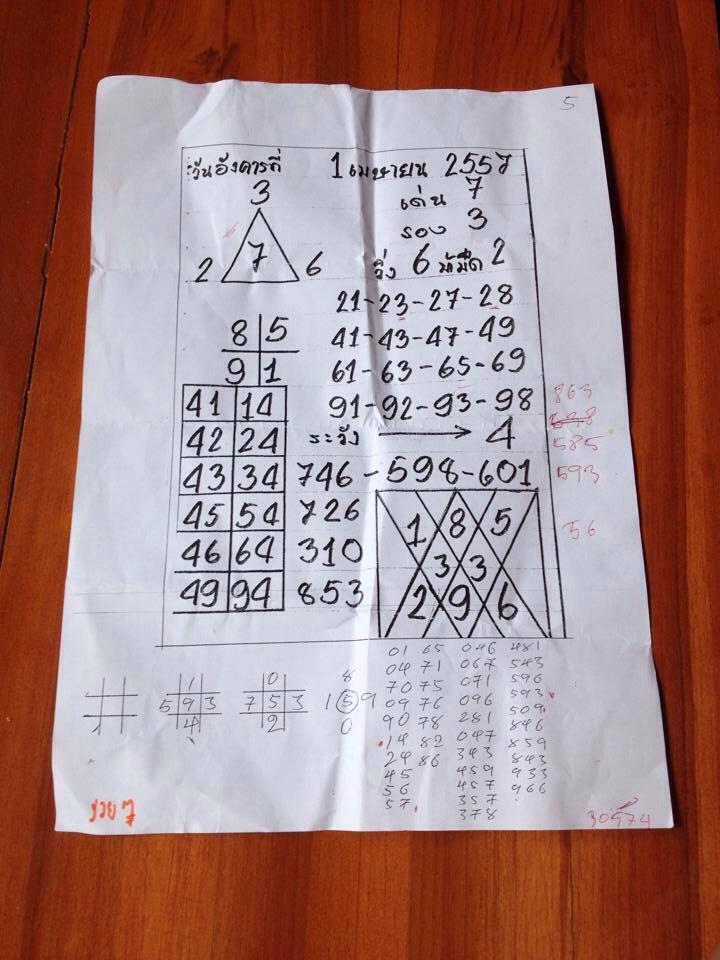 5
วันอังคารที่ 1 เมษายน 2557
3
เด่น 7
รอง 3
2 7 6
วิ่ง 6 2
21-23-27-28
8 5
41-43-47-49
9 1
61-63-65-69
41 14
91-92-93-98
863
42 24
ระวัง 4
585
43 34
746-598-601
593
45 54
726
1 8 5
56
46 64
310
3 3
49 94
853
2 9 6
01 65 046 481
04 71 067 543
1 0 8
7075 071 596
5 9 3 7 5 3 1 5 9
09 76 096 593
1 4 2 0
90 78 281 509
14 82 047 846
24 86 343 859
45 459 843
56 457 933
57 357 966
378
30574